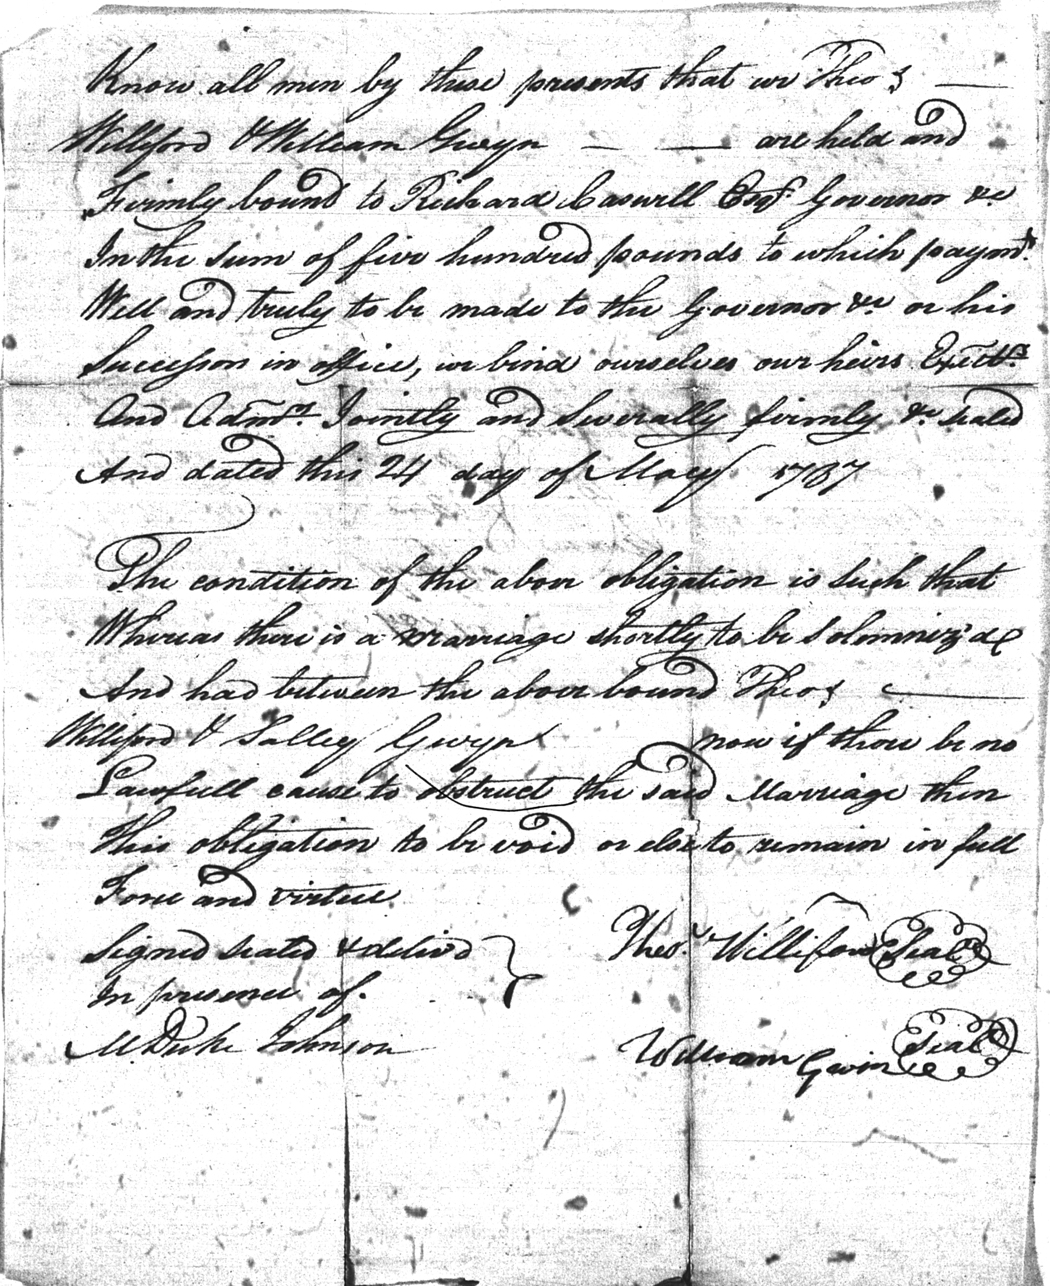 Know all men by these presents that we Thos
Williford & William Gwyn — — are held and
Firmly bound to Richard Caswell Esqr Governor &c
In the sum of five hundred pounds to which paymt
Well and truly to be made to the Governor &c or his
Successors in office, we bind ourselves our heirs Exectrs
And Admrs Jointly and Severally firmly &c sealed
And dated this 24 day of May 1787
The condition of the above obligation is such that
Whereas there is a marriage shortly to be Solemniz'd
And had between the above bound Thos —
Williford & Salley Gwyn now if there be no
Lawfull cause to obstruct the said Marriage then
This obligation to be void or else to remain in full
Force and virtue
Signed sealed & delivd
In presence of.
M Duke Johnson
Thos. Williford Seal
William Gwin Seal